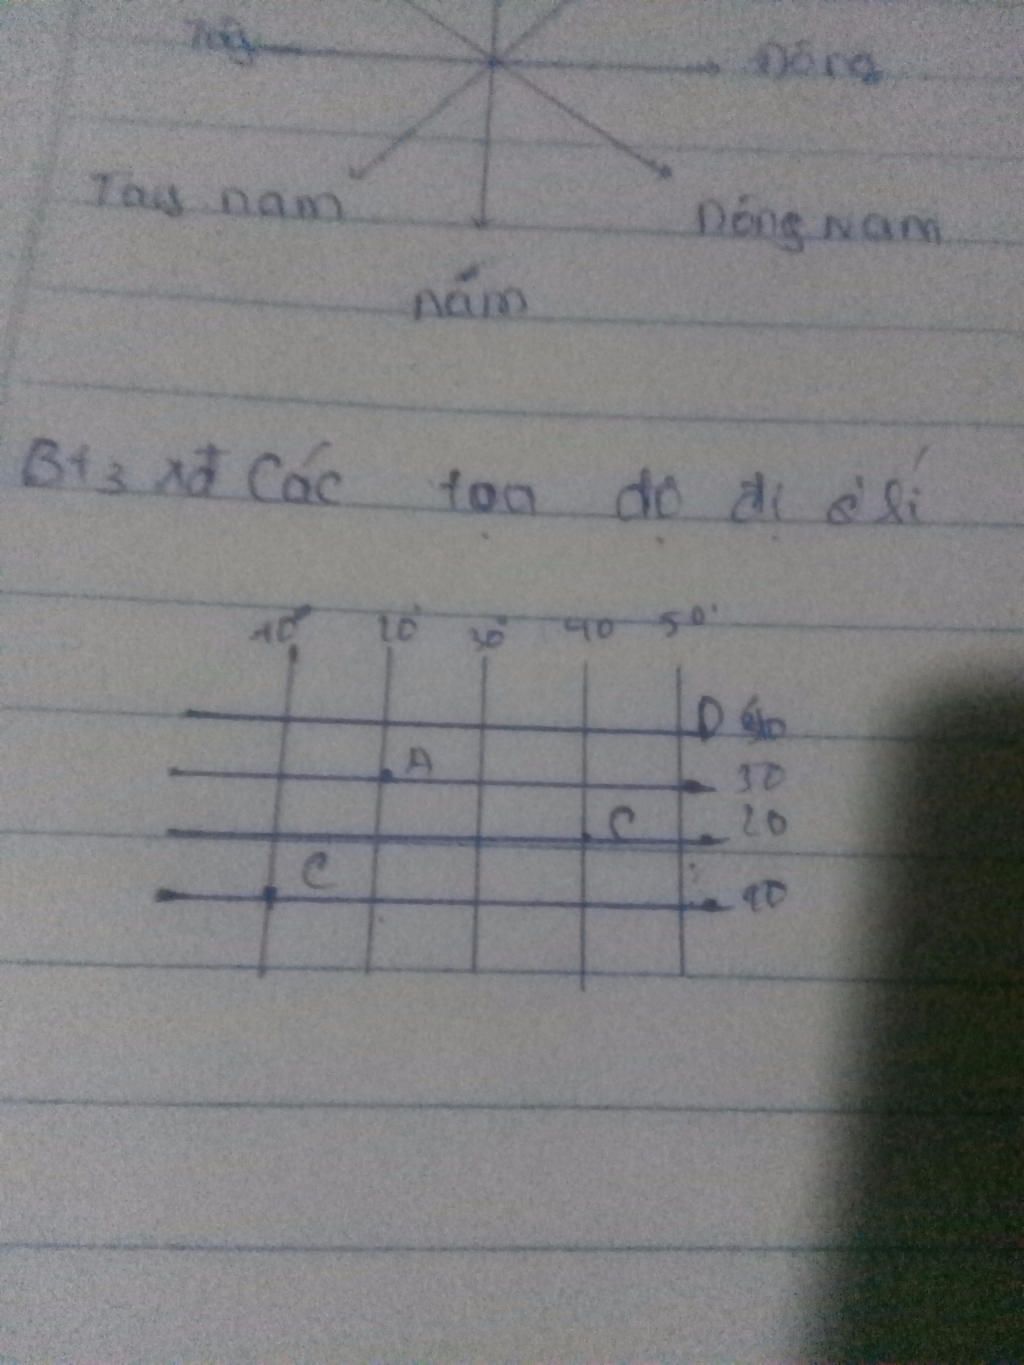 Tây Đông
Tây nam Đông Nam
nám
Bt3 xđ Các tọa độ đị
10° 20° 30° 40 50°
D
A 30
C 20
C 10